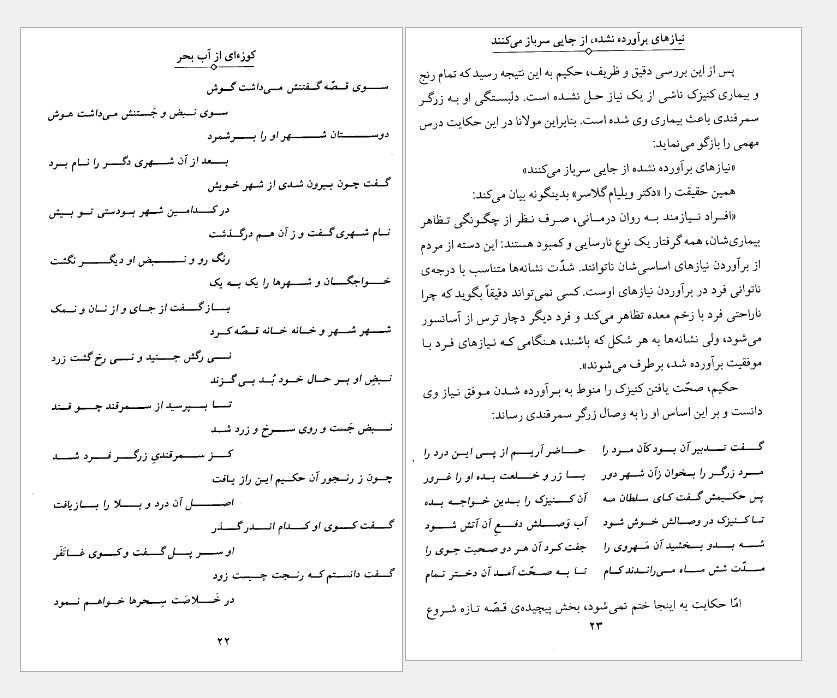 کوزه‌ای از آب بحر
ســوی قصّه گـفتنش مـی‌داشت گـوش
ســوی نـبض و جَستنش می‌داشت هوش
دوســتان شــهر او را بــرشمرد
بـعد از آن شـهری دگـر را نام بـرد
گـفت چون بیرون شدی از شهر خویش
در کـدامـین شهر بـودستی تـو بـیش
نـام شهری گفت و ز آن هـم درگـذشت
رنگ رو و نـبض او دیگـر نگشت
خـواجگـان و شـهرها را یک بـه یک
بـاز گـفت از جای و از نـان و نـمک
شـهر شهر و خـانه خانه قصّه کـرد
نـی رگش جنبید و نـی رخ گشت زرد
نـبضِ او بـر حـال خـود بُـد بـی گـزند
تـا بـپرسید از سـمرقند چـو قـند
نـبض جَست و روی سـرخ و زرد شـد
کـز سـمرقندیِ زرگـر فـرد شـد
چون ز رنجور آن حکیم این راز یافت
اصـل آن درد و بـلا را بـازیافت
گـفت کـوی او کـدام انـدر گـذر
او سـر پـل گـفت و کـوی غـاتَفَر
گـفت دانستم کـه رنجت چـیست زود
در خَـلاصَت سِحرها خـواهـم نـمود
۲۲
نیازهای برآورده نشده، از جایی سرباز می‌کنند
پس از این بررسی دقیق و ظریف، حکیم به این نتیجه رسید که تمام رنج
و بیماری کنیزک ناشی از یک نیاز حل نشده است. دلبستگی او به زرگر
سمرقندی باعث بیماری وی شده است. بنابراین مولانا در این حکایت درس
مهمی را بازگو می‌نماید:
«نیازهای برآورده نشده از جایی سرباز می‌کنند»
همین حقیقت را «دکتر ویلیام گلاسر» بدینگونه بیان می‌کند:
«افـراد نیازمند بـه روان درمـانی، صرف نـظر از چگونگی تـظاهر
بیماری‌شان، همه گرفتار یک نوع نارسایی و کمبود هستند: این دسته از مردم
از برآوردن نیازهای اساسی‌شان ناتوانند. شدّت نشانه‌ها متناسب با درجه‌ی
ناتوانی فرد در برآوردن نیازهای اوست. کسی نمی‌تواند دقیقاً بگوید که چرا
ناراحتی فرد با زخم معده تظاهر می‌کند و فرد دیگر دچار ترس از آسانسور
می‌شود، ولی نشانه‌ها به هر شکل که باشند، هنگامی که نیازهای فرد بـا
موفقیت برآورده شد، برطرف می‌شوند».
حکیم، صحّت یافتن کنیزک را منوط به برآورده شدن موفق نیاز وی
دانست و بر این اساس او را به وصال زرگر سمرقندی رساند:
گـفت تـدبیر آن بـود کآن مـرد را حـاضر آریـم از پـی ایـن درد را
مـرد زرگـر را بـخوان زآن شهر دور بـا زر و خـلعت بده او را غرور
پس حکیمش گفت کـای سلطان مـه آن کـنیزک را بـدین خـواجـه بـده
تـا کـنیزک در وصـالش خوش شود آب وَصـلش دفـع آن آتش شـود
شـه بـدو بـخشید آن مَـهروی را جفت کرد آن هـر دو صحبت جوی را
مـدّت شش مـاه مـی‌رانـدند کـام تـا بـه صحّت آمـد آن دختر تمام
امّا حکایت به اینجا ختم نمی‌شود، بخش پیچیده‌ی قصّه تازه شـروع
۲۳